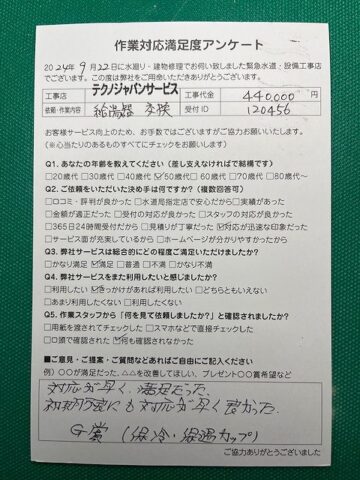 作業対応満足度アンケート
2024年9月22日に水廻り・建物修理でお伺い致しました緊急水道・設備工事店
でございます。この度は弊社をご用命いただきありがとうございます。
工事店 テクノジャパンサービス 工事代金 440,000円
依頼・作業内容 給湯器 交換 受付ID 120456
お客様サービス向上のため、お手数ではございますがご協力お願いいたします。
(※心当たりのあるものすべてにチェックをお願いします)
Q1. あなたの年齢を教えてください(差し支えなければで結構です)
□20歳代 □30歳代 □40歳代 ☑50歳代 □60歳代 □70歳代 □80歳代〜
Q2. ご依頼をいただいた決め手は何ですか?(複数回答可)
□口コミ・評判が良かった □水道局指定店で安心だから □実績があった
□金額が適正だった □受付の対応が良かった □スタッフの対応が良かった
□365日24時間受付だから □見積りが丁寧だった ☑対応が迅速な印象だった
□サービス面が充実しているから □ホームページが分かりやすかったから
Q3. 弊社サービスは総合的にどの程度ご満足いただけましたか?
□かなり満足 ☑満足 □普通 □不満 □かなり不満
Q4. 弊社サービスをまた利用したいと感じましたか?
□利用したい ☑きっかけがあれば利用したい □どちらともいえない
□あまり利用したくない □利用したくない
Q5. 作業スタッフから「何を見て依頼しましたか?」と確認されましたか?
□用紙を渡されてチェックした □スマホなどで直接チェックした
□口頭で確認された ☑何も確認されなかった
■ご意見・ご提案・ご質問などあればご自由にご記入ください
例)○○が満足だった、△△を改善してほしい、プレゼント○○賞希望など
対応が早く、満足だった。
対応が早く良かった。
G賞 (保冷・保温カップ)
ご協力ありがとうございました